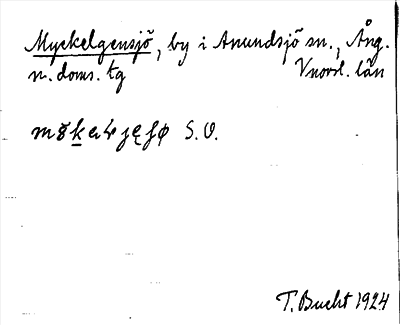 Myckelgensjö, by i Anundsjö sn., Ång.
n. doms. tg Vnorrl. län
S. O.
T. Bucht 1924